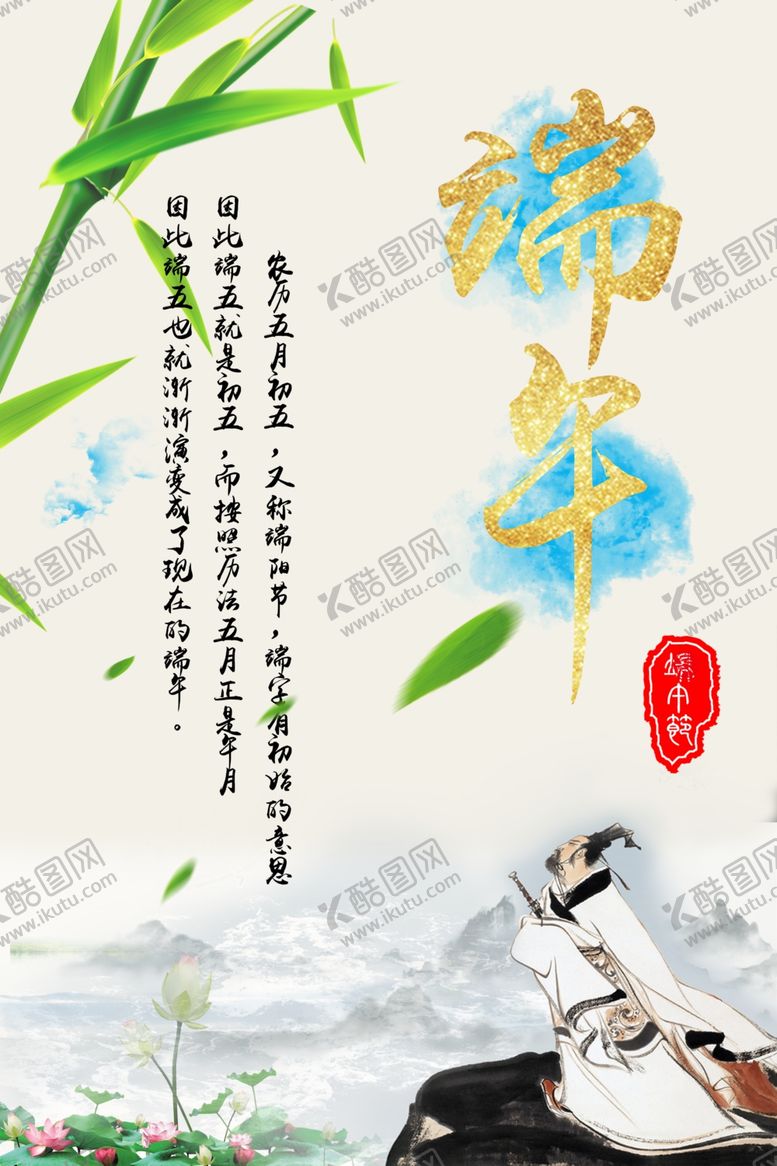 端午
端午節
农历五月初五，又称端阳节，端字有初始的意思
因此端五就是初五，而按照历法五月正是午月
因此端五也就渐渐演变成了现在的端午。
酷图网
www.ikutu.com